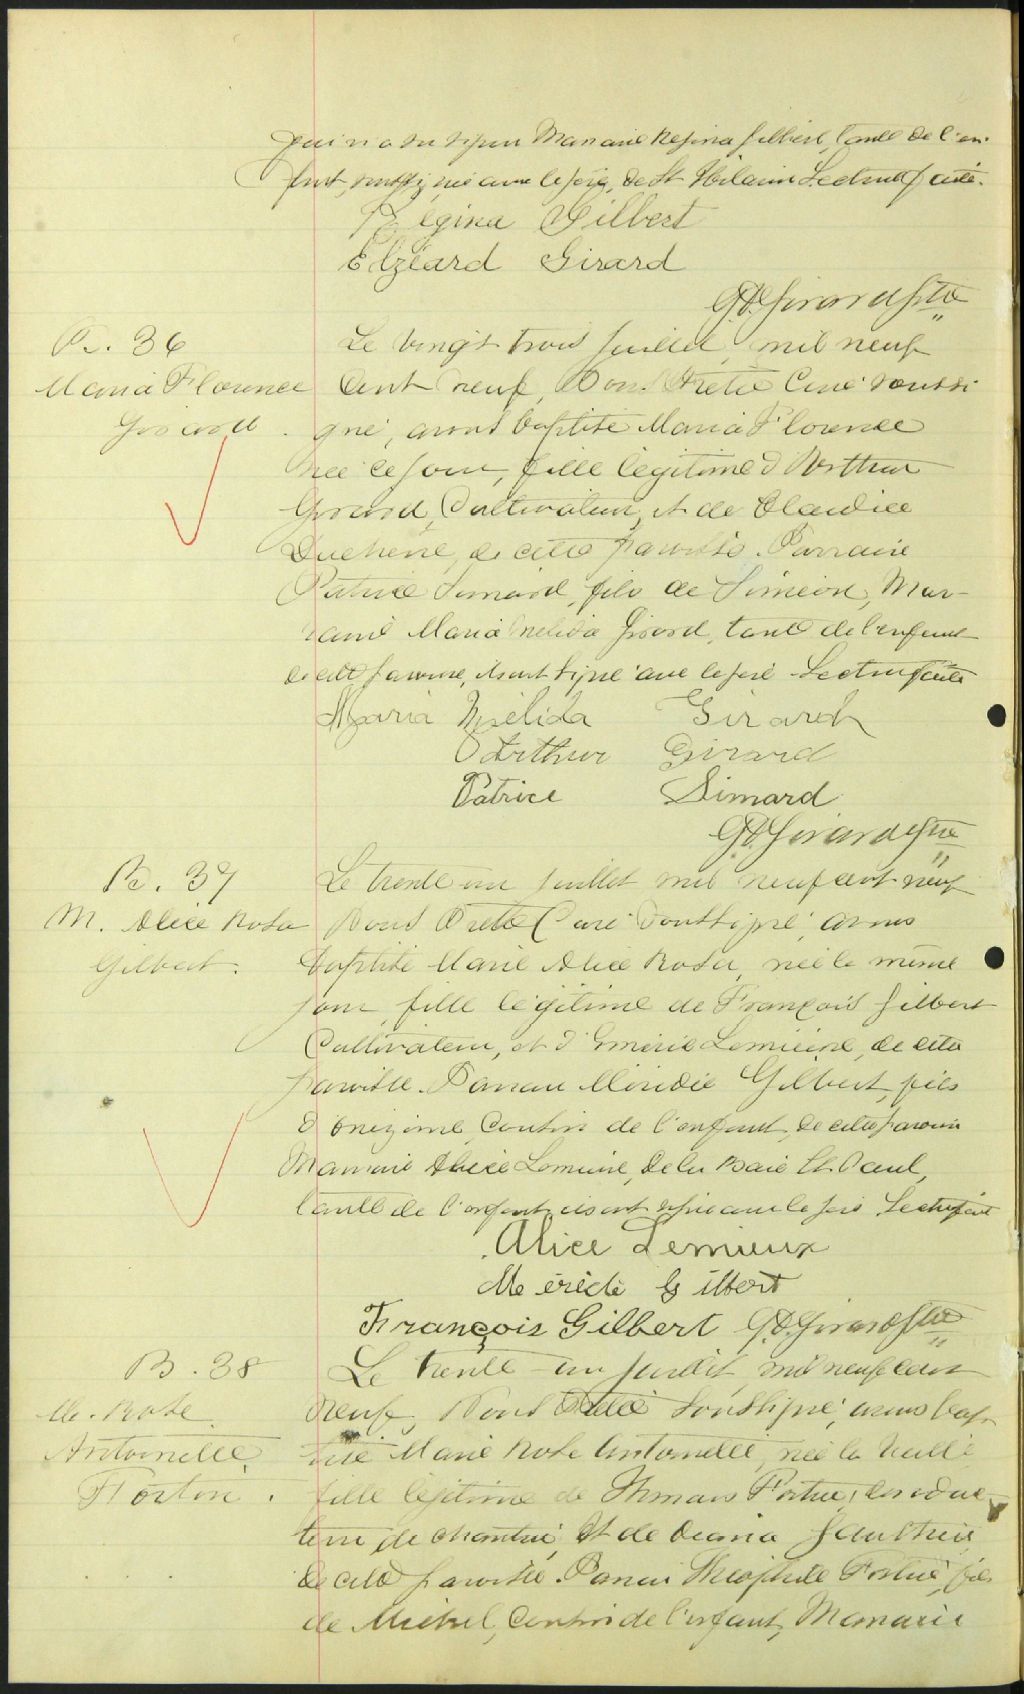 qui n'a su signer Marraine Regina Gilbert, tante de l'en-
fant, soussignée avec le père, de St Hilarion Lecture faite.
Regina Gilbert
Elzéard Girard
Girard Ptre
B. 36
Maria Florence
Girard
Le vingt trois Juillet mil neuf
Cent neuf, Nous Prêtre Curé soussi
gné, avons baptisé Maria Florence
née ce jour, fille légitime d'Arthur
Girard, Cultivateur, et de Claudia
Duchene, de cette paroisse. Parraine
Patrice Simard, fils de Siméon, Mar-
raine Maria Mélida Girard, tante de l'enfant
de cette paroisse, ils ont signé avec le père Lecture faite
Maria Mélida Girard
Arthur Girard
Patrice Simard
Girard Ptre
B. 37
M. Alice Rosa
Gilbert.
Le trente un juillet mil neuf cent neuf
Nous Prêtre Curé soussigné, avons
baptisé Marie Alice Rosa, née le même
jour, fille légitime de François Gilbert
Cultivateur, et d' Lemieux, de cette
paroisse. Parrain Gilbert, fils
d'Onezime, Cousin de l'enfant, de cette paroisse
Marraine Alice Lemieux, de la Baie St. Paul,
tante de l'enfant, ils ont signé avec le père Lecture faite
Alice Lemieux
Gilbert
François Gilbert Girard Ptre
B. 38
M. Rose
Antoinette
Fortin.
Le trente-un juillet, mil neuf cent
neuf, Nous Prêtre soussigné, avons bap
tisé Marie Rose Antoinette, née la veille
fille légitime de Thomas Fortin, conduc-
teur de chantier, et de Gauthier
de cette paroisse. Parrain Théophile Fortin, fils
de Michel, Cousin de l'enfant, Marraine